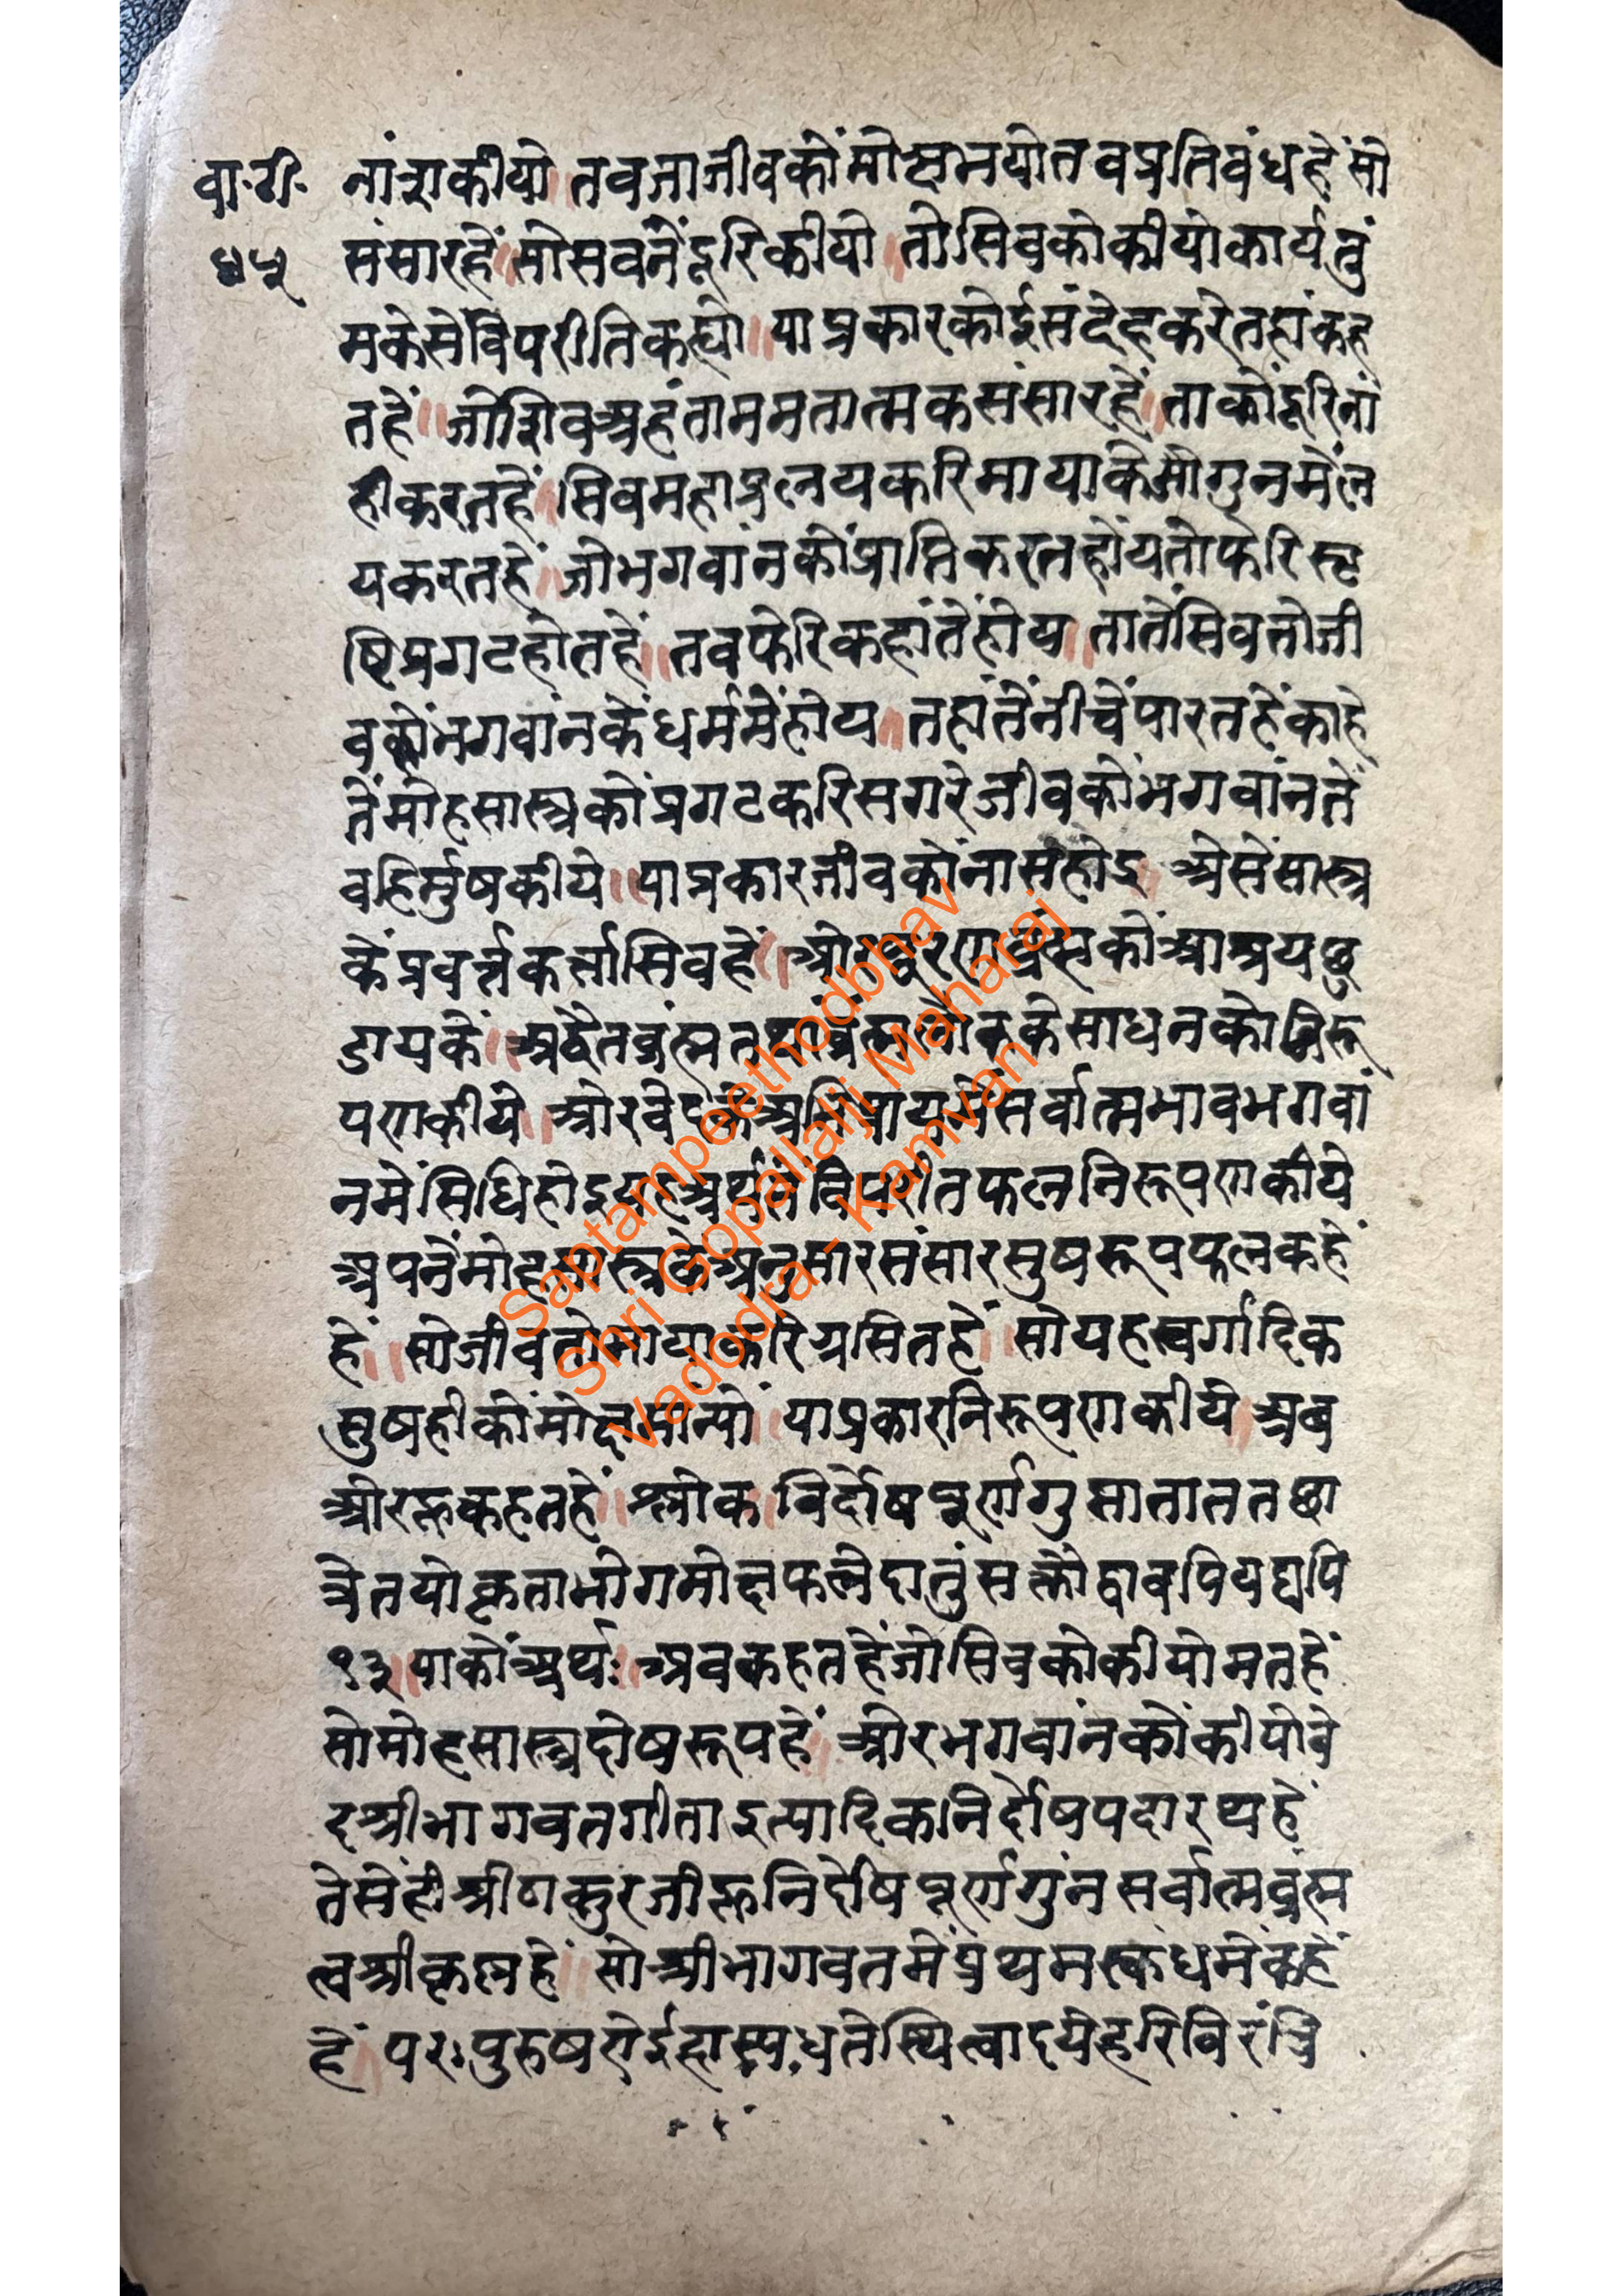 वा.टी.
४५
नांशकीयो तवजाजीवकोंमोक्षभयोतवप्रतिवंधहेंसो
संसारहें सोसवनेंदूरिकीयो तोसिवकोकीयोकार्यतुं
मकेसेंविपरीतिकह्यो याप्रकारकोईसंदेहकरेतहांकह
तहें जोशिवअहंताममतात्मकसंसारहें ताकोंदूरिनां
हीकरतहें सिवमहाप्रलयकरिमायाकेमोगुनमेंल
यकरतहें जोभगवांनकोंप्राप्तिकरतहोंयतोफेरिसृ
ष्टिप्रगटहोतहें तवफेरिकहांतेंहोय तातेंसिवतोजी
वकोंभगवांनकेंधर्ममेंहोय तहांतेंनीचेंपारतहेंकाहे
तेंमोहसास्त्रकोंप्रगटकरिसगरेजीवकोंभगवांनतें
वहिर्मुषकीये याप्रकारजीवकोंनासहोइ अेसेंसास्त्र
केंप्रवर्त्तकर्त्तासिवहें ओरपुरणव्रंह्मकोंआश्रयछु
डायकें अद्वैतव्रंह्मतथाव्रंह्मलोककेसाधनकोनिरू
पणकीये ओरवेदकेंअभिप्रायमेंसर्वात्मभावभगवां
नमेंसिधिहोइयहअर्थतेंविपरीतफलनिरूपणकीये
अपनेंमोहसास्त्रकेअनुसारसंसारसुषरूपफलकहें
हें सोजीवतोमायाकरिग्रसितहें सोयहस्वर्गादिक
सुषहीकोंमोक्षमांन्यों याप्रकारनिरूपणकीये अव
ओरहूकहतहें श्लोक निर्दोषपूर्णगुणतातत्तछा
त्रेतयोकृताभोगमोक्षफलेदातुंसक्तोद्वावपियद्यपि
१३ याकोंअर्थः अवकहतहेंजोसिवकोकीयोमतहें
सोमोहसास्त्रदोषरूपहें ओरभगवांनकोंकीयोवे
दश्रीभागवतगीताइत्यादिकनिर्दोषपदारथहें
तेसेंहीश्रीठाकुरजीहूनिर्दोषपूर्णगुंनसर्वात्मव्रंह्म
त्वश्रीकृष्णहें सोश्रीभागवतमेंप्रथमस्कंधमेंकहें
हें परःपुरुषएईहास्यधतेस्थित्वादयेहरिविरंचि
Saptampeethodbhav
Shri Gopallalji Maharaj
Vadodra - Kamvan